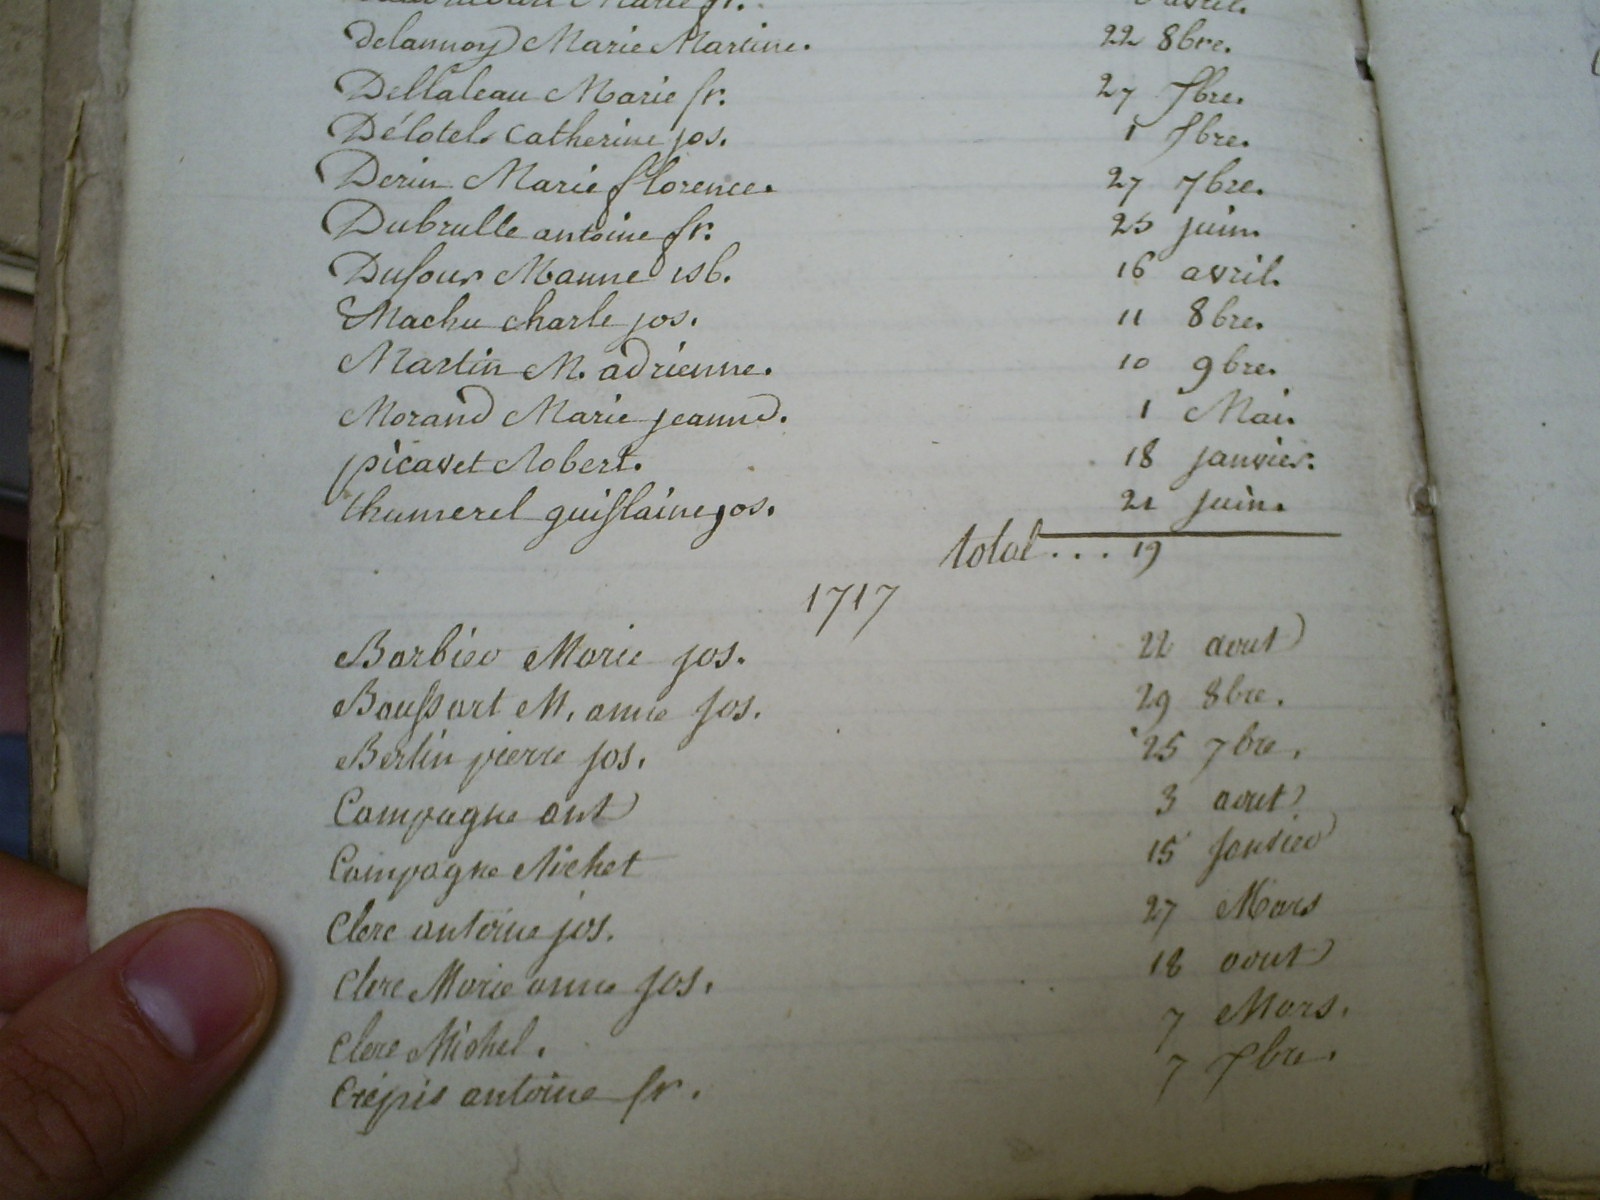 Marie fr. avril.
Delannoy Marie Martine. 22 8bre.
Dellaleau Marie fr. 27 fbre.
Délotel Catherine jos. 1 fbre.
Derin Marie florence. 27 7bre.
Dubrulle antoine fr. 25 juin.
Dufour M anne isb. 16 avril.
Machu charle jos. 11 8bre.
Martin M. adrienne. 10 9bre.
Morand Marie jeanne. 1 Mai.
picavet Robert. 18 janvier.
thumerel guislaine jos. 21 juin.
total . . . 19
1717
Barbier Marie jos. 22 aout
Baussart M. anne jos. 29 8bre.
Bertin pierre jos. 25 7bre.
Campagne ant 3 aout
Campagne Michel 15 janvier
Clerc antoine jos. 27 Mars
Clerc Marie anne jos. 18 aout
Clerc Michel. 7 Mars.
Crépis antoine fr. 7 fbre.